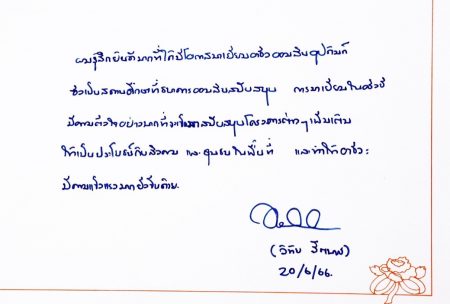 ผมรู้สึกยินดีมากที่ได้มีโอกาสมาเยี่ยมอาชีวะออมสินอุปถัมภ์
ซึ่งเป็นสถานศึกษาที่ธนาคารออมสินสนับสนุน การมาเยี่ยมในครั้งนี้
มีความตั้งใจอย่างมากที่จะให้การสนับสนุนโครงการต่างๆ เพิ่มเติม
ให้เป็นประโยชน์กับสังคม และ ชุมชนในพื้นที่ และทำให้อาชีวะ
มีความแข็งแรงมากยิ่งขึ้นด้วย.
(วิทัย รัตนากร)
20/6/66.